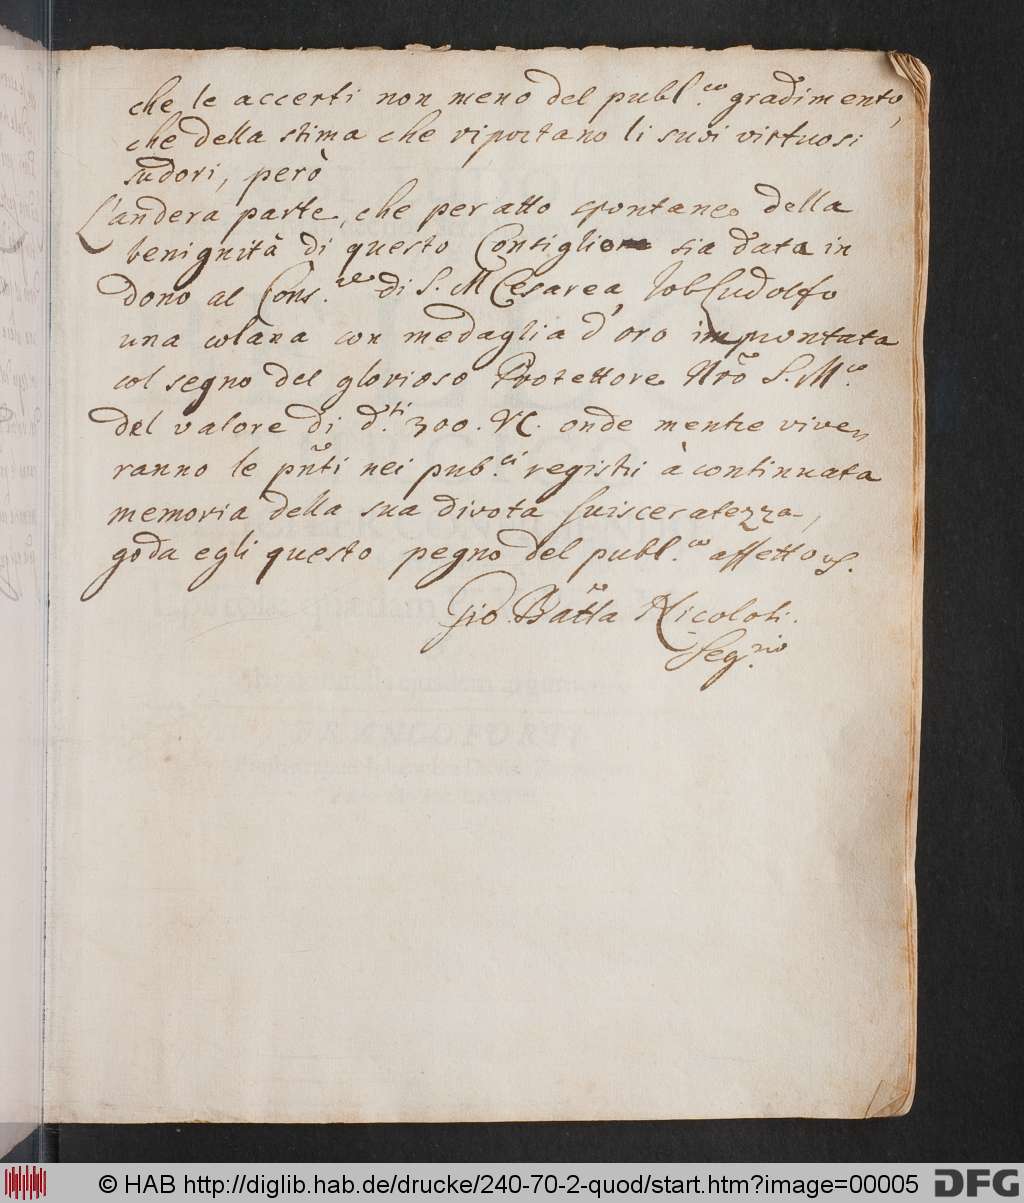 che le accerti non meno del publ.co gradimento,
che della stima che riportano li suoi virtuosi
sudori, però
L'anderà parte, che per atto spontaneo della
benignità di questo Consiglio sia data in
dono al Cons.re di S. M Cesarea Job Ludolfo
una colana con medaglia d'oro improntata
col segno del glorioso Protettore Nrõ S. M.co
del valore di d.ti 300. VC. onde mentre vive
ranno le pñti nei pub.ci registri à continuata
memoria della sua divota svisceratezza,
goda egli questo pegno del publ.co affetto
Gio. Batta Nicolosi.
Seg.rio
FRANCOFURTI
© HAB http://diglib.hab.de/drucke/240-70-2-quod/start.htm?image=00005 DFG